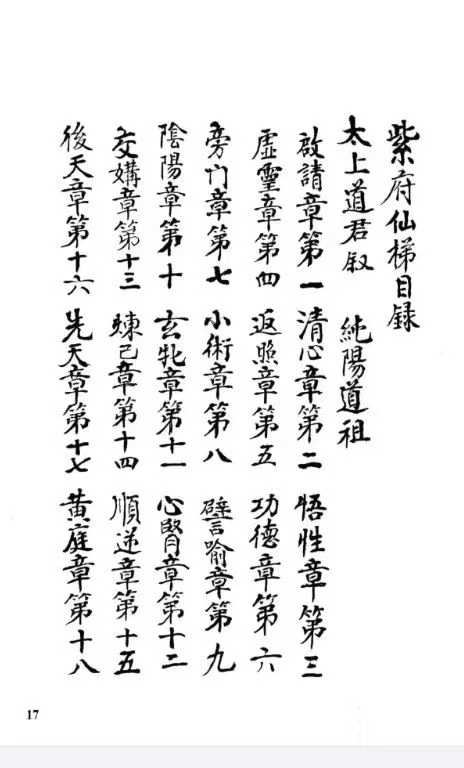 紫府仙梯目錄
太上道君叙 純陽道祖
啟請章第一 清心章第二 悟性章第三
虛靈章第四 返照章第五 功德章第六
旁门章第七 小術章第八 譬喻章第九
陰陽章第十 玄牝章第十一 心腎章第十二
交媾章第十三 煉己章第十四 順逆章第十五
後天章第十六 先天章第十七 黃庭章第十八
17